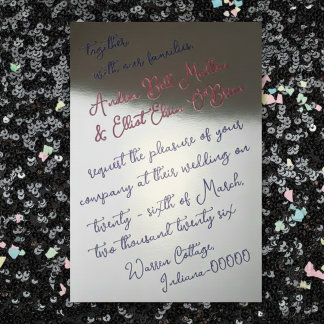 Together,
with our families,
Andrea Bell
& Elliot O'Brien
request the pleasure of your
company at their wedding on
twenty - sixth of March,
two thousand twenty six
Warren Cottage,
Indiana-00000